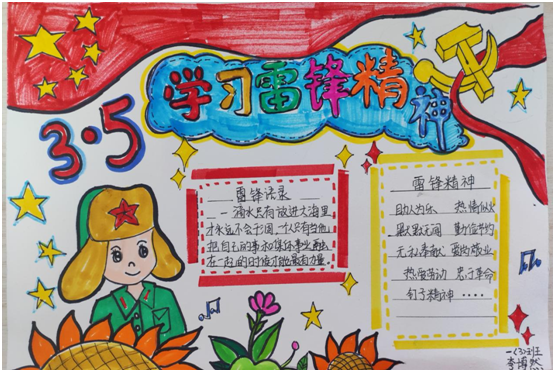 学习雷锋精神
3·5
雷锋语录
一滴水只有放进大海里
才永远不会干涸,一个人只有当他
把自己的事和集体事业融合
在一起的时候才能最有力量。
雷锋精神
助人为乐、热情似火
默默无闻 勤俭节约
无私奉献、爱岗敬业
热爱劳动 忠于革命
钉子精神 ····
一(3)班
李博然